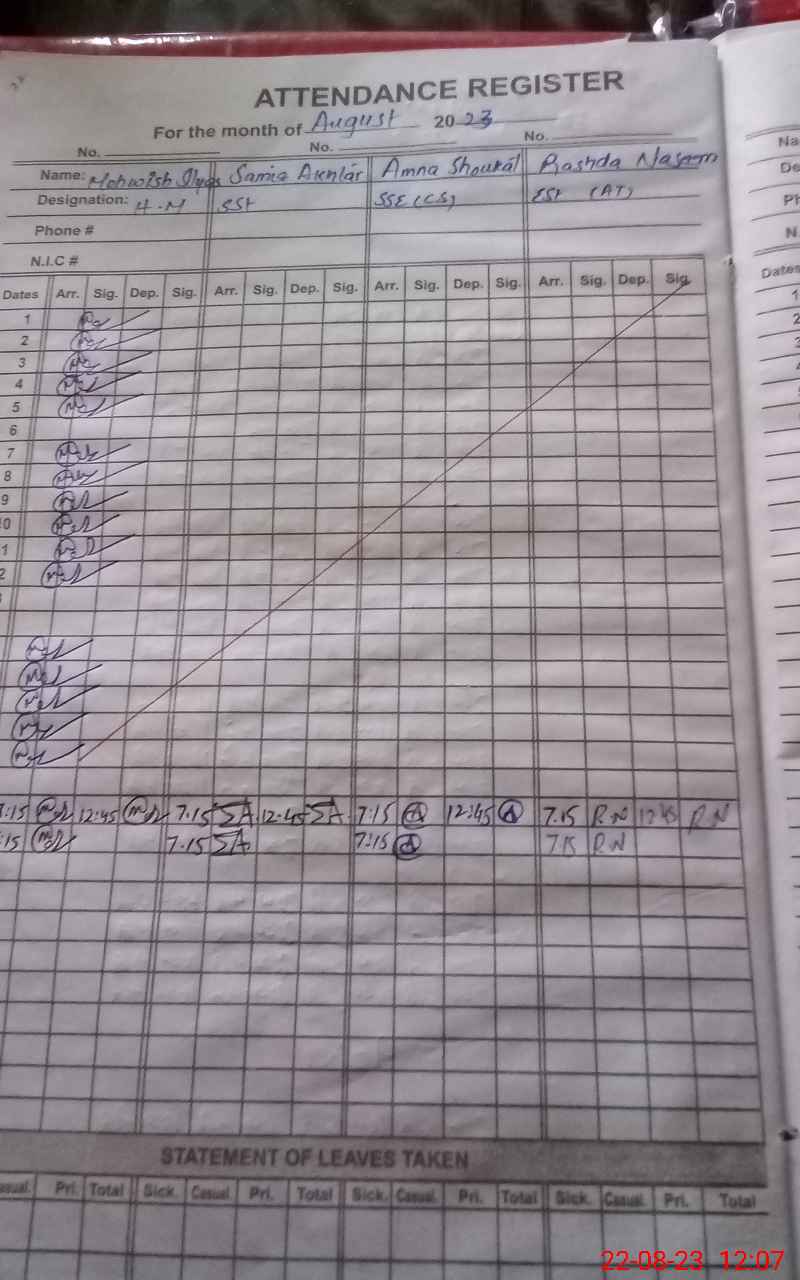 ATTENDANCE REGISTER
For the month of August 2023
No. No. No.
Name: Mehwish Ilyas Samia Akhtar Amna Shoukat Rashda Naseem
Designation: H.M SST SSE (CS) ESt (AT)
Phone #
N.I.C #
Dates Arr. Sig. Dep. Sig. Arr. Sig. Dep. Sig. Arr. Sig. Dep. Sig. Arr. Sig. Dep. Sig.
1
2
3
4
5
6
7
8
9
0
1
2
:15 12:45 7.15 SA 12.45 SA 7:15 A 12:45 A 7.15 R.N 12:45 R.N
:15 7.15 SA 7:15 A 7.15 R.N
STATEMENT OF LEAVES TAKEN
asual. Pri. Total Sick. Casual. Pri. Total Sick. Casual. Pri. Total Sick. Casual. Pri. Total
Na
De
Ph
N.
Dates
1
2
22-08-23 12:07